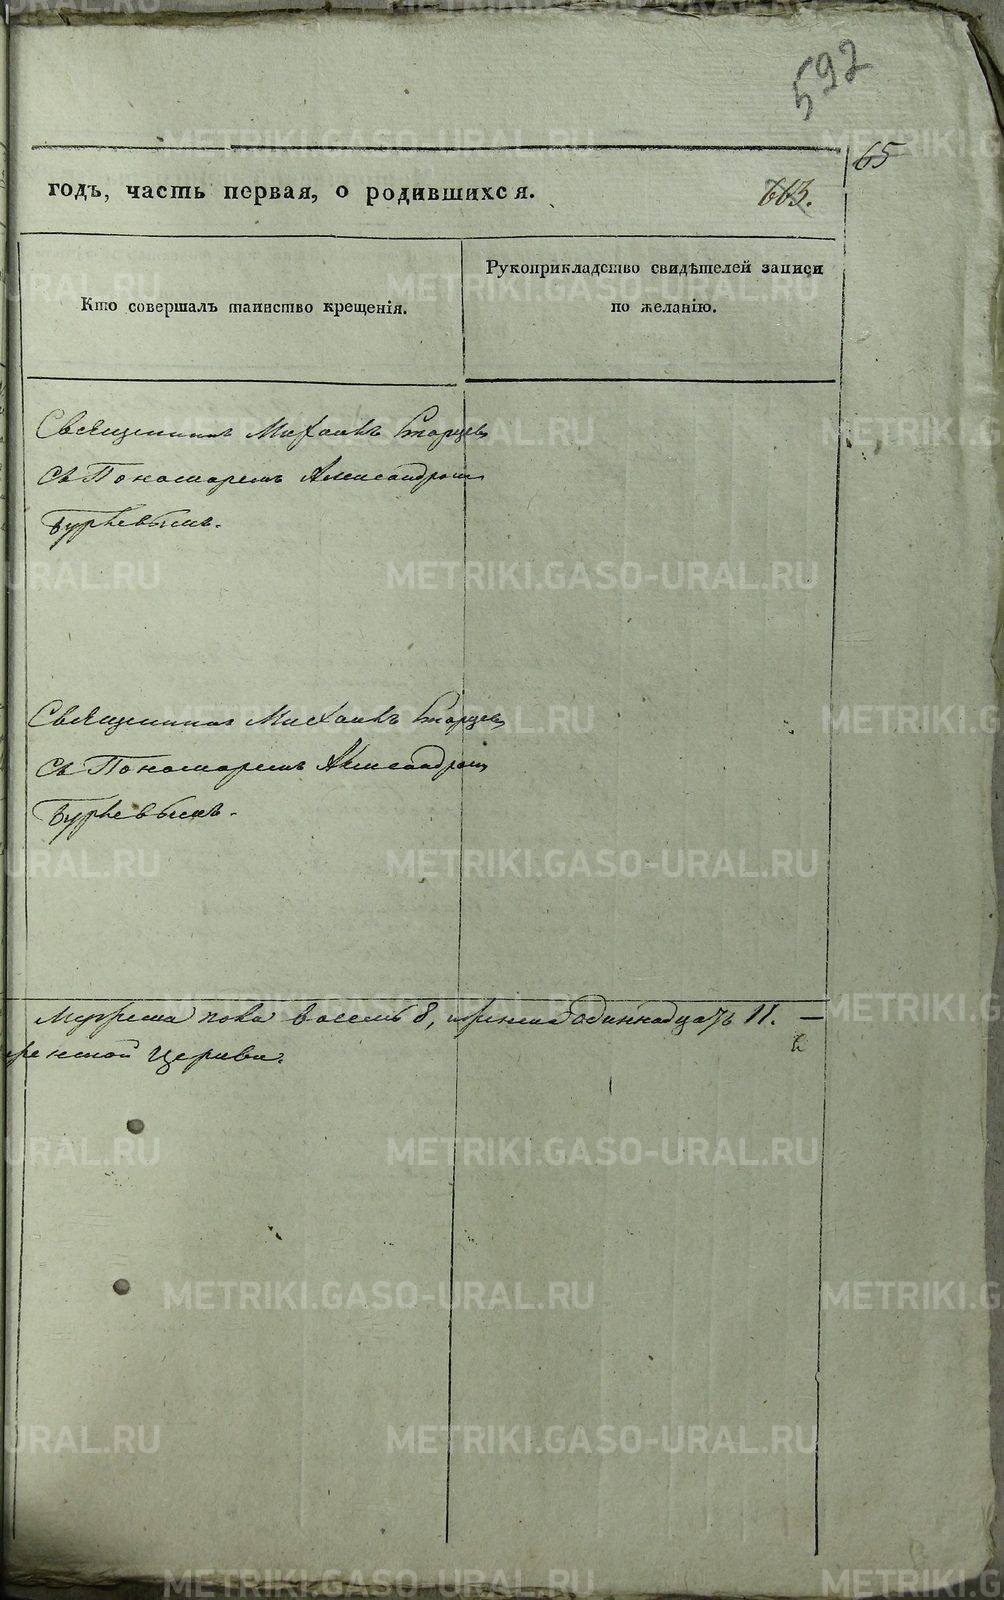 592
65
годъ, часть первая, о родившихся.
663.
Кто совершалъ таинство крещенія.
Рукоприкладство свидѣтелей записи
по желанію.
Священникъ Михаилъ
съ Пономаремъ Александромъ
Священникъ Михаилъ
съ Пономаремъ Александромъ
Мужеска пола восемь 8, женска одиннадцать 11. —
Церкви.
METRIKI.GASO-URAL.RU